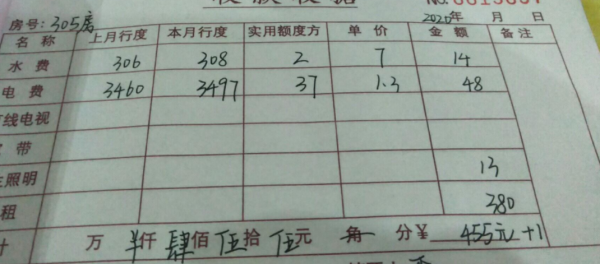 收款收据 No.
房号:305房 2020年 月 日
名称 上月行度 本月行度 实用额度方 单价 金额 备注
水费 306 308 2 7 14
电费 3460 3497 37 1.3 48
线电视
带
照明 13
租 380
计 万 仟肆佰伍拾伍元 角 分¥ 455元+1